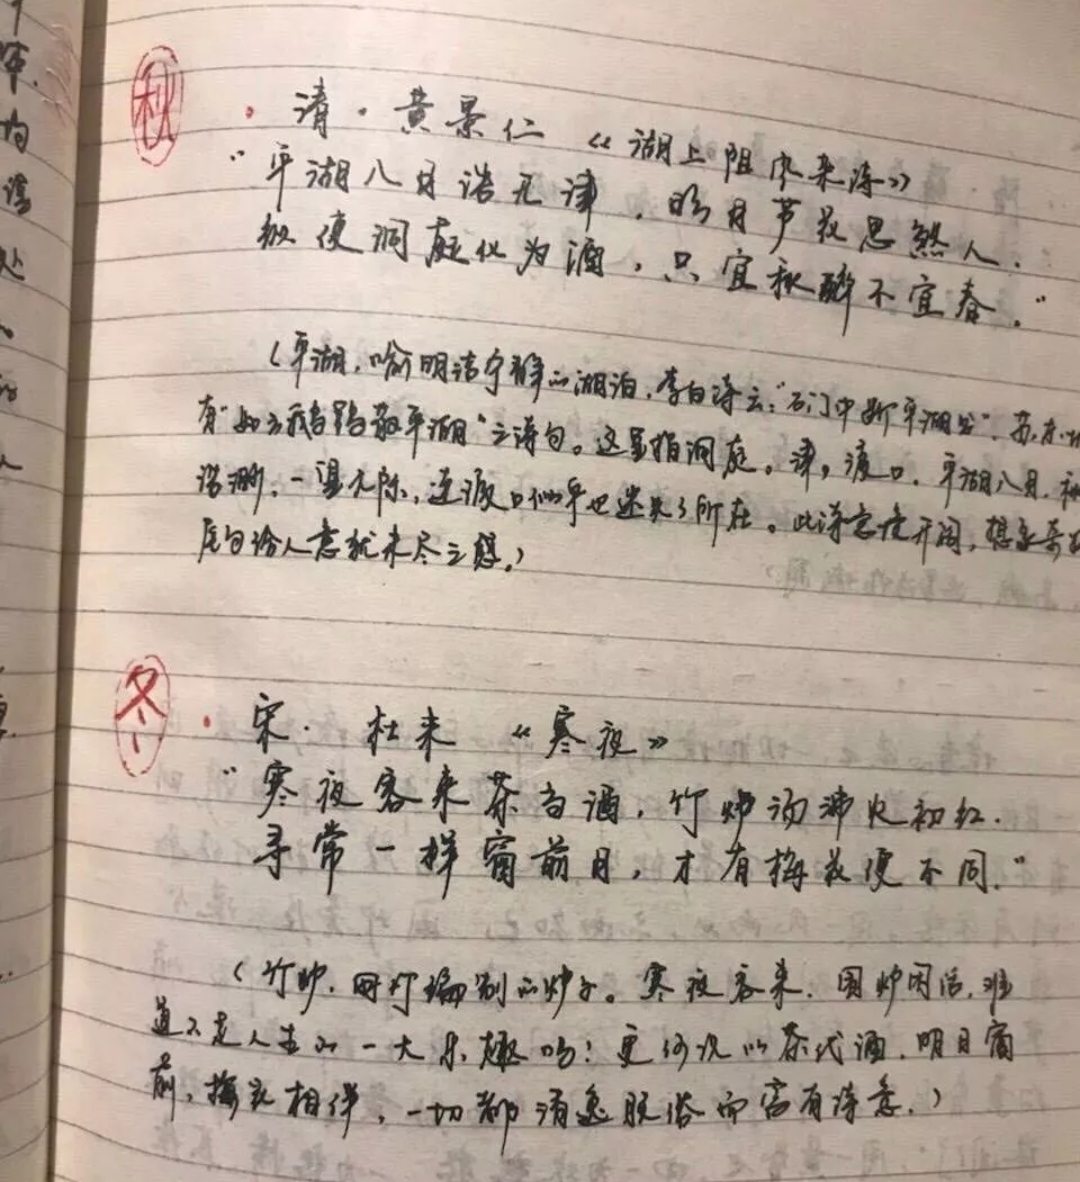 秋
· 清·黄景仁 《湖上阻风杂诗》
"平湖八月浩无津，明月芦花思煞人.
纵使洞庭化为酒，只宜秋醉不宜春."
（平湖，喻明洁宁静的湖泊.李白诗云："石门中断平湖出".苏东
有"如今我鸟鹤散平湖"之诗句。这里指洞庭。津，渡口.平湖八月,秋
浩渺，一望无际，连渡口似乎也迷失了所在。此诗意境开阔，想象奇
尾句给人意犹未尽之想.）
冬
· 宋·杜耒 《寒夜》
"寒夜客来茶当酒，竹炉汤沸火初红.
寻常一样窗前月，才有梅花便不同."
（竹炉，用竹编制的炉子。寒夜客来，围炉闲话，难
道不是人生的一大乐趣吗？更何况以茶代酒，明月窗
前，梅花相伴，一切都清逸脱俗而富有诗意.）